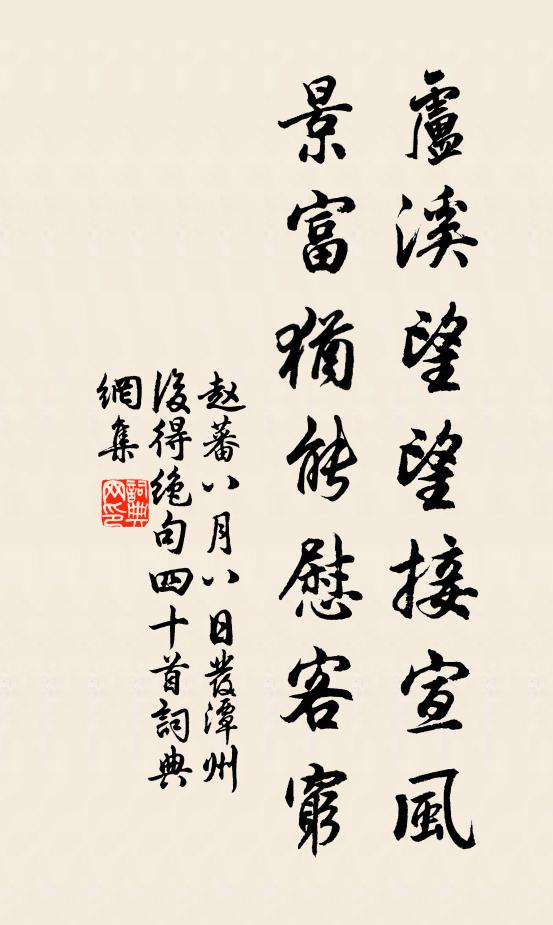 盧溪望望接宣風
景富猶能慰客窮
赵蕃八月八日發潭州
後得绝句四十首詞典
網集
詞典
网印